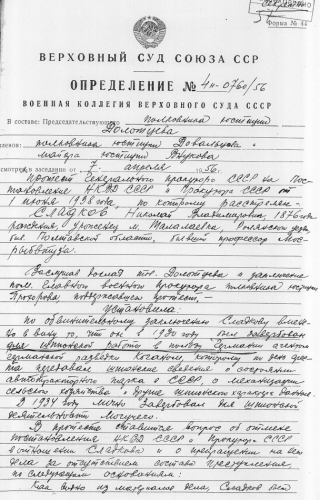 СЕКРЕТНО
Форма № 44
57
ВЕРХОВНЫЙ СУД СОЮЗА ССР
ОПРЕДЕЛЕНИЕ № 4н-0760/56
ВОЕННАЯ КОЛЛЕГИЯ ВЕРХОВНОГО СУДА СССР
В составе: Председательствующего полковника юстиции
Долотцева
членов: полковника юстиции и
майора юстиции
рассмотрев в заседании от 7 апреля 56.
протест Генерального прокурора СССР на пос-
тановление НКВД СССР и Прокурора СССР от
1 июня 1938 года, по которому расстрелян—
СЛАДКОВ Николай Владимирович 1876 года
рождения, уроженец м. Талалаевка, Роменского
Полтавской области, бывший профессор Мос-
рыбвтуза.
Заслушав доклад тов. Долотцева и заключение
пом. Главного военного прокурора полковника юстиции
Прохорова, протест,—
Установила:
по обвинительному заключению Сладкову вмене-
но в вину то, что он в 1930 году был завербован
для шпионской работы в пользу Германии агентом
германской разведки Коганом, которому по день ареста
передавал шпионские сведения о состоянии
автотракторного парка в СССР, о механизации
сельского хозяйства и другие шпионского характера данные.
В 1934 году лично завербовал для шпионской
деятельности
В протесте ставится вопрос об отмене
постановления НКВД СССР и Прокурора СССР
в отношении Сладкова и о прекращении на него
дела за отсутствием состава преступления,
по следующим основаниям:
Как видно из материалов дела, Сладков был